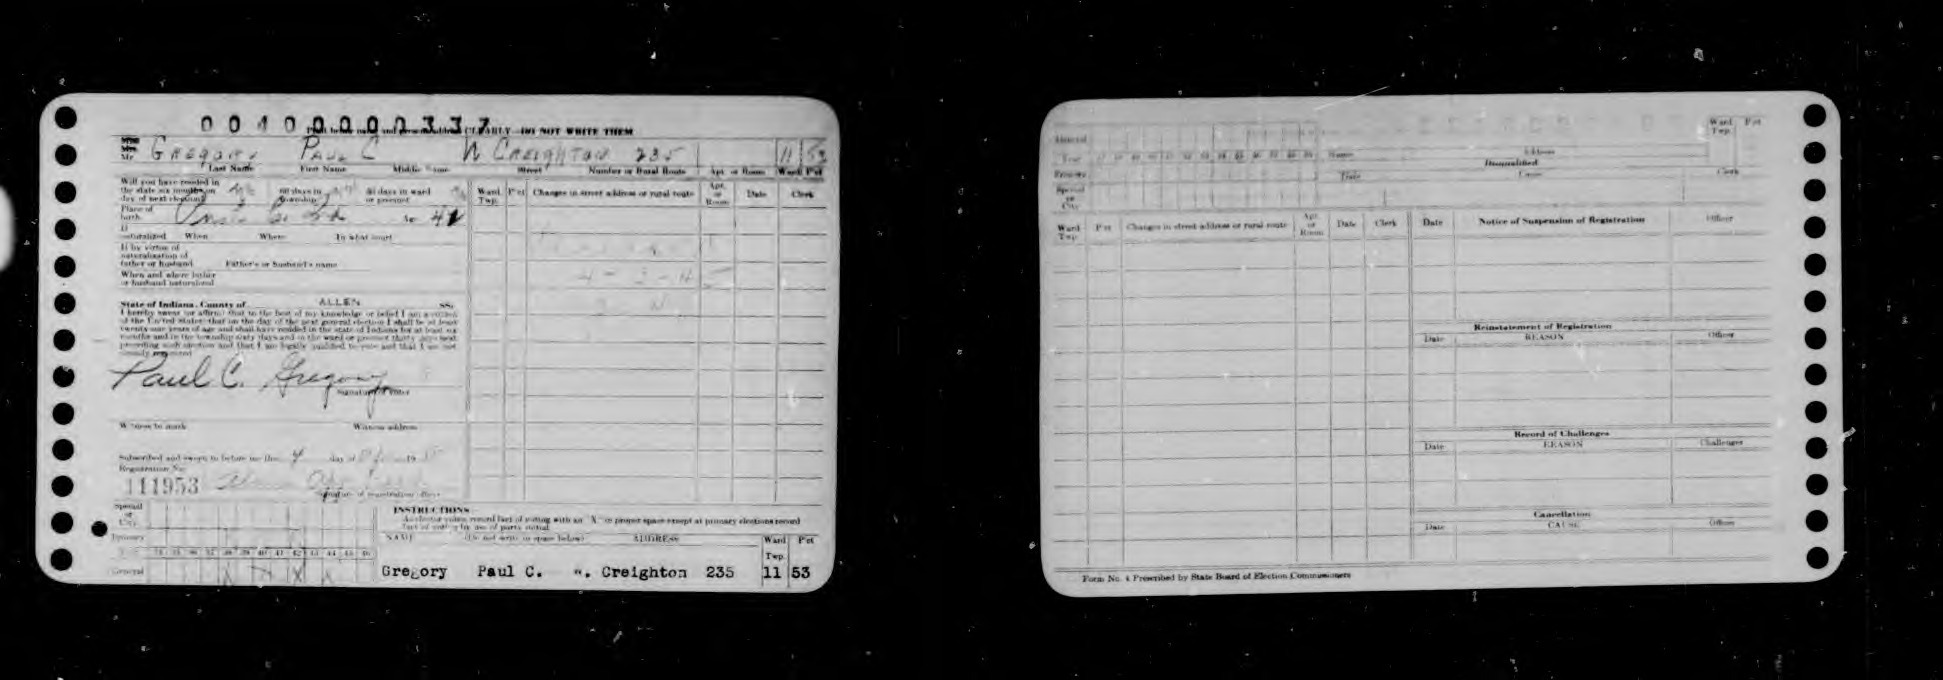 00400000337
Print below name and present address CLEARLY—DO NOT WRITE THEM
Miss
Mrs.
Mr. GREGORY PAUL C W CREIGHTON 235 11 53
Last Name First Name Middle Name Street Number or Rural Route Apt. or Room Ward Pct
Will you have resided in
the state six months on 60 days in 30 days in ward
day of next election? township? or precinct
Place of
birth Age
If
naturalized When Where In what court
If by virtue of
naturalization of
father or husband Father's or husband's name
When and where father
or husband naturalized
State of Indiana, County of ALLEN SS.
I hereby swear (or affirm) that to the best of my knowledge or belief I am a citizen
of the United States; that on the day of the next general election I shall be at least
twenty-one years of age and shall have resided in the state of Indiana for at least six
months and in the township sixty days and in the ward or precinct thirty days next
preceding such election and that I am legally qualified to vote and that I am not
already registered
Paul C. Gregory
Signature of Voter
Witness to mark Witness address
Subscribed and sworn to before me this day of 19
Registration No.
111953
Signature of registration officer
Ward Twp. Pct Changes in street address or rural route Apt. or Room Date Clerk
Special
or
City
Primary
General
INSTRUCTIONS
As elector votes, record fact of voting with an "X" in proper space except at primary elections record
fact of voting by use of party initial
NAME (Do not write in space below) ADDRESS Ward Twp. Pct
Gregory Paul C. Creighton 235 11 53
General
Year
Primary
Special
or
City
Name Address Ward Twp. Pct
Disqualified
Date Cause Clerk
Ward Twp. Pct Changes in street address or rural route Apt. or Room Date Clerk
Date Notice of Suspension of Registration Officer
Reinstatement of Registration
Date REASON Officer
Record of Challenges
Date REASON Challenger
Cancellation
Date CAUSE Officer
Form No. 4 Prescribed by State Board of Election Commissioners